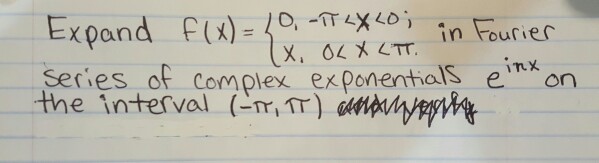 Expand f(x) = { 0, -π<x<0; in Fourier
x, 0< x <π.
series of complex exponentials e^{inx} on
the interval (-π, π)